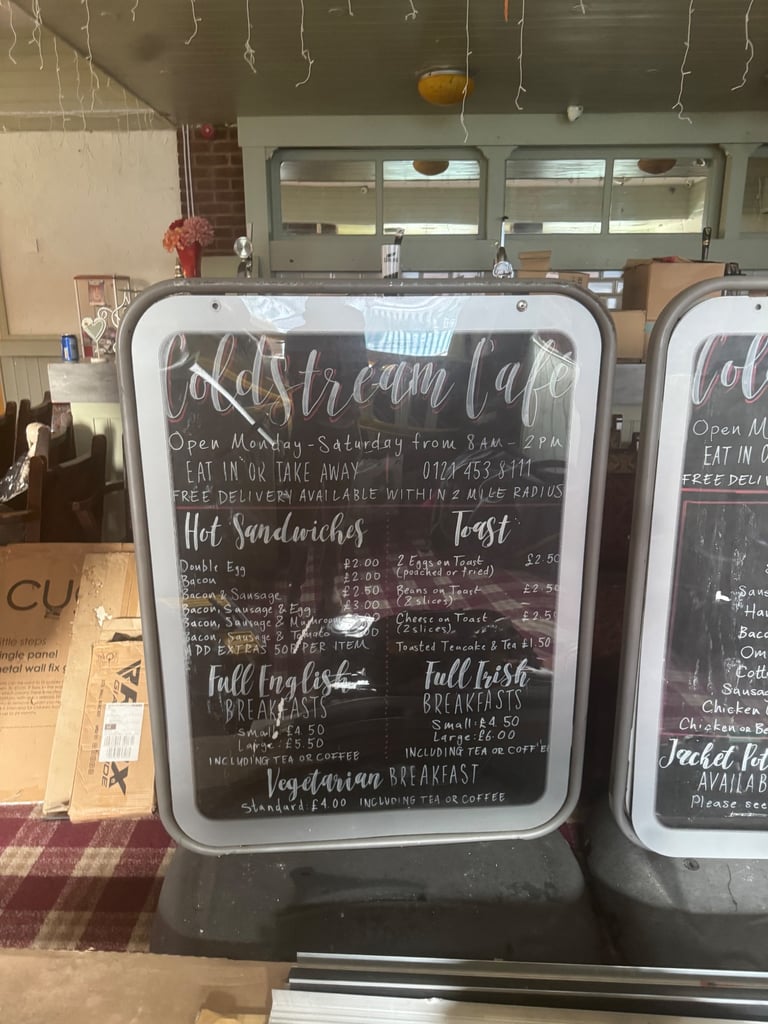 Coldstream Cafe
Open Monday - Saturday from 8AM - 2PM
EAT IN OR TAKE AWAY 0121 453 8111
FREE DELIVERY AVAILABLE WITHIN 2 MILE RADIUS
Hot Sandwiches
Double Egg £2.00
Bacon £2.00
Bacon & Sausage £2.50
Bacon, Sausage & Egg £3.00
Bacon, Sausage & Mushroom
Bacon, Sausage & Tomato
ADD EXTRAS 50P PER ITEM
Toast
2 Eggs on Toast £2.50
(poached or fried)
Beans on Toast £2.50
(2 slices)
Cheese on Toast £2.50
(2 slices)
Toasted Teacake & Tea £1.50
Full English
BREAKFASTS
Small: £4.50
Large: £5.50
INCLUDING TEA OR COFFEE
Full Irish
BREAKFASTS
Small: £4.50
Large: £6.00
INCLUDING TEA OR COFFEE
Vegetarian BREAKFAST
Standard: £4.00 INCLUDING TEA OR COFFEE
Col
Open M
EAT IN O
FREE DELIV
S
Saus
Ha
Baco
Om
Cott
Sausag
Chicken
Chicken or Be
Jacket Pot
AVAILAB
Please see
CU
ittle steps
ingle panel
etal wall fix